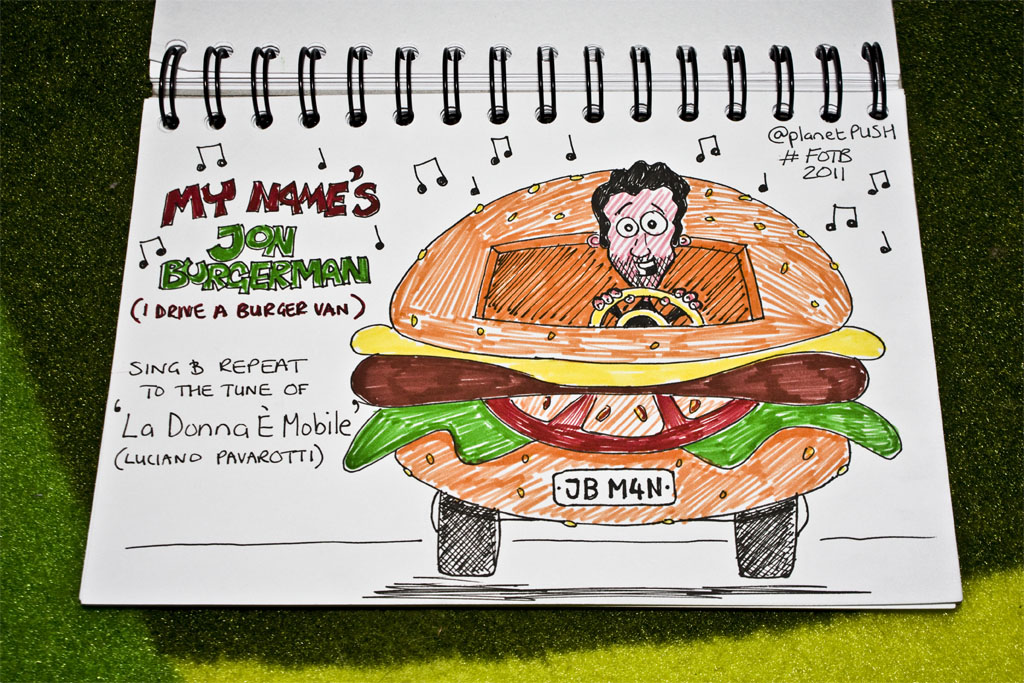 MY NAME'S
JON
BURGERMAN
(I DRIVE A BURGER VAN)
SING & REPEAT
TO THE TUNE OF
'La Donna È Mobile'
(LUCIANO PAVAROTTI)
@planetPUSH
# FOTB
2011
·JB M4N·